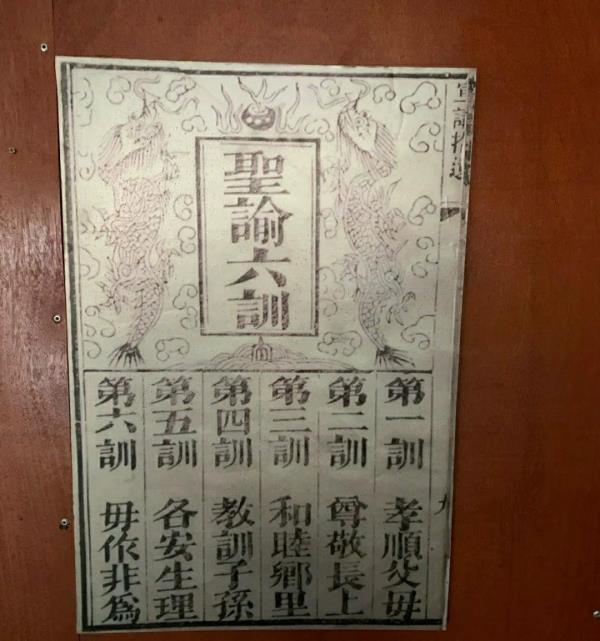 宣講拾遺
聖諭六訓
第一訓 孝順父母
第二訓 尊敬長上
第三訓 和睦鄉里
第四訓 教訓子孫
第五訓 各安生理
第六訓 毋依非為